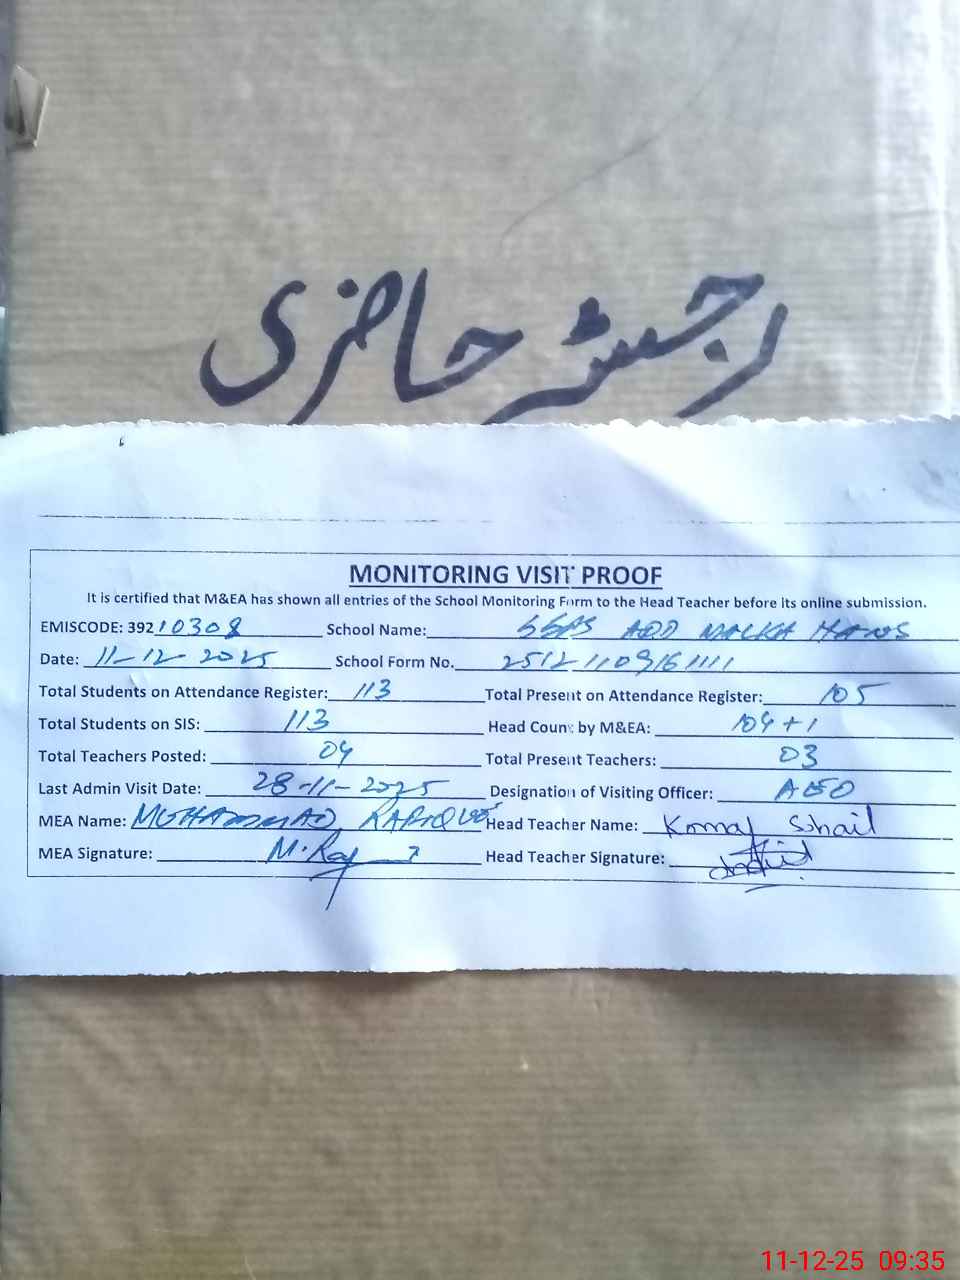 رجسٹر حاضری
MONITORING VISIT PROOF
It is certified that M&EA has shown all entries of the School Monitoring Form to the Head Teacher before its online submission.
EMISCODE: 39210308 School Name: MALKA HANS
Date: 11-12-2025 School Form No. 25121109161111
Total Students on Attendance Register: 113 Total Present on Attendance Register: 105
Total Students on SIS: 113 Head Count by M&EA: 104+1
Total Teachers Posted: 04 Total Present Teachers: 03
Last Admin Visit Date: 28-11-2025 Designation of Visiting Officer: AEO
MEA Name: MUHAMMAD RAFIQUE Head Teacher Name: Komal Sohail
MEA Signature: M. Raf Head Teacher Signature:
11-12-25 09:35